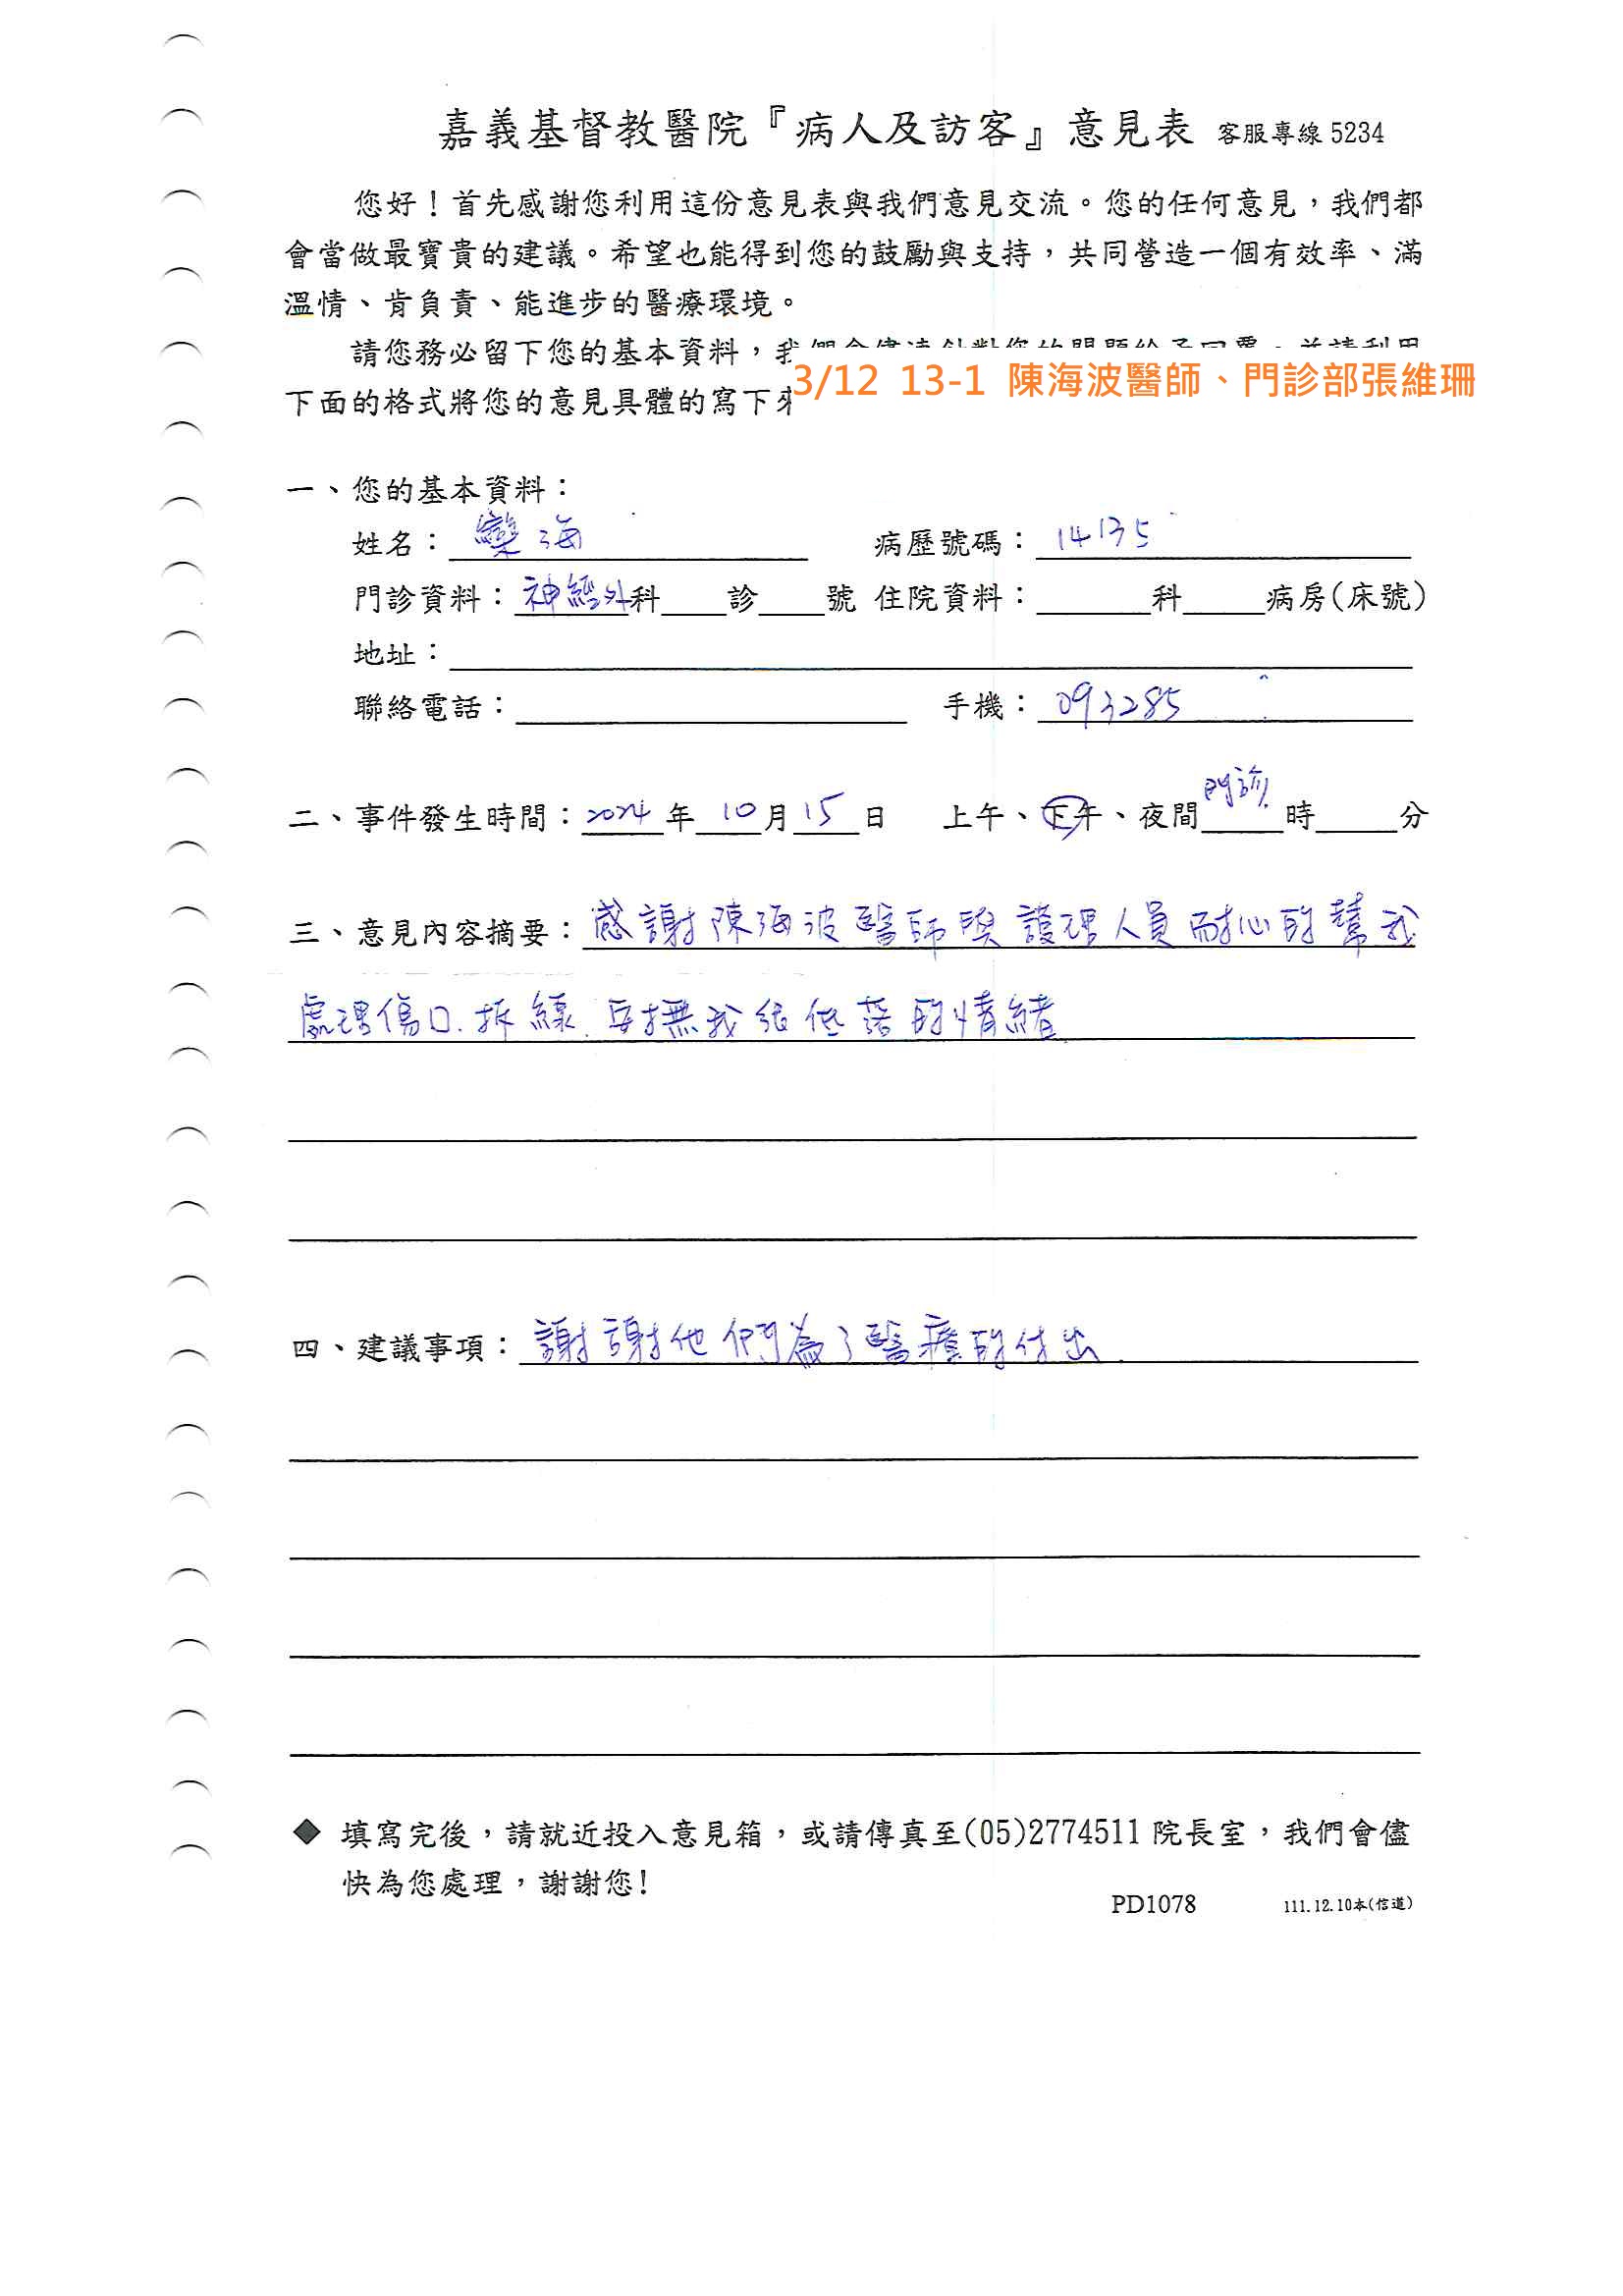 嘉義基督教醫院『病人及訪客』意見表 客服專線 5234
您好！首先感謝您利用這份意見表與我們意見交流。您的任何意見，我們都
會當做最寶貴的建議。希望也能得到您的鼓勵與支持，共同營造一個有效率、滿
溫情、肯負責、能進步的醫療環境。
請您務必留下您的基本資料，我們會儘速針對您的問題給予回覆，並請利用
3/12 13-1 陳海波醫師、門診部張維珊
下面的格式將您的意見具體的寫下來
一、您的基本資料：
姓名：欒海 病歷號碼：14135
門診資料：神經外科 診 號 住院資料： 科 病房(床號)
地址：
聯絡電話： 手機：093285
二、事件發生時間：2024年10月15日 上午、下午、夜間 門診 時 分
三、意見內容摘要：感謝陳海波醫師與護理人員耐心的幫我
處理傷口.拆線.安撫我很低落的情緒.
四、建議事項：謝謝他們為了醫療的付出.
◆ 填寫完後，請就近投入意見箱，或請傳真至(05)2774511 院長室，我們會儘
快為您處理，謝謝您！
PD1078 111.12.10本(信道)